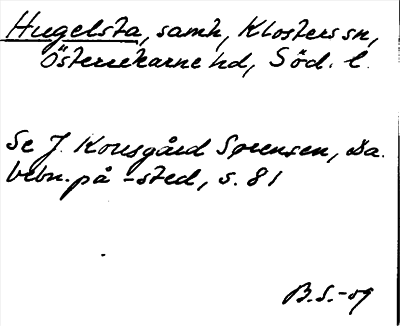 Hugelsta, samh, Klosters sn,
Österrekarne hd, Söd. l.
Se J. Kousgård Sørensen, Da.
bebn. på -sted, s. 81
B.S.-59